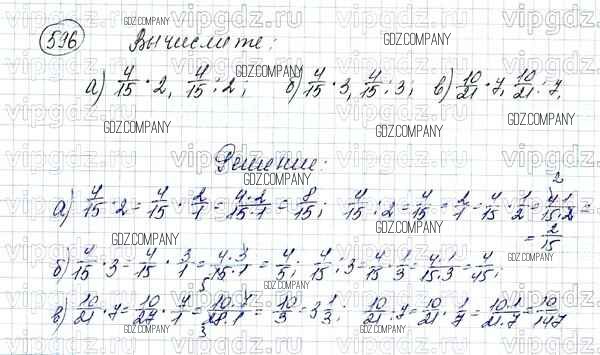 596 Вычислите:
а) 4/15 · 2, 4/15 : 2; б) 4/15 · 3, 4/15 : 3; в) 10/21 · 7, 10/21 : 7,
Решение:
а) 4/15 · 2 = 4/15 · 2/1 = 4·2/15·1 = 8/15; 4/15 : 2 = 4/15 : 2/1 = 4/15 · 1/2 = 4·1/15·2 =
= 2/15
б) 4/15 · 3 = 4/15 · 3/1 = 4·3/15·1 = 4/5; 4/15 : 3 = 4/15 · 1/3 = 4·1/15·3 = 4/45;
в) 10/21 · 7 = 10/21 · 7/1 = 10·7/21·1 = 10/3 = 3 1/3; 10/21 : 7 = 10/21 · 1/7 = 10·1/21·7 = 10/147
GDZ.COMPANY
vipgdz.com